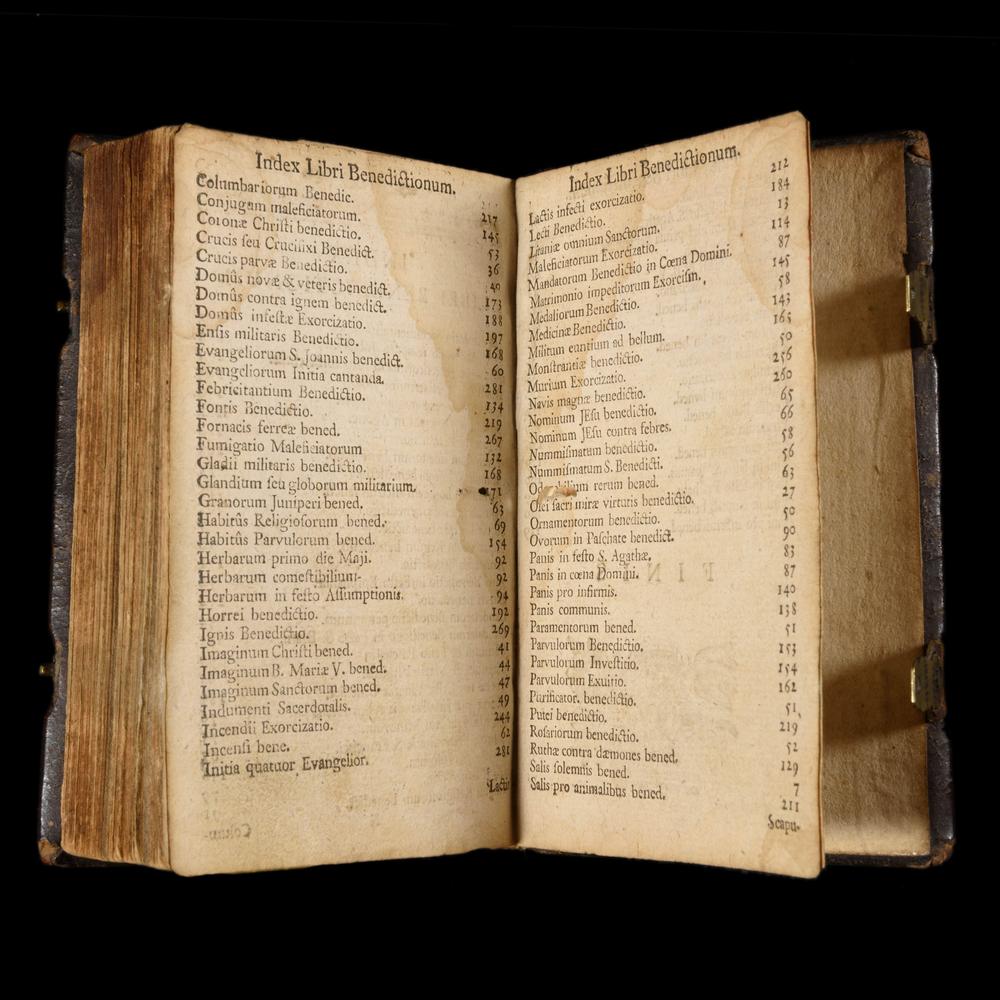 Index Libri Benedictionum.
Columbariorum Benedic. 217
Conjugum maleficiatorum. 145
Coronæ Chriſti benedictio. 53
Crucis ſeu Crucifixi Benedict. 36
Crucis parvæ Benedictio. 40
Domûs novæ & veteris benedict. 173
Domûs contra ignem benedict. 188
Domûs infeſtæ Exorcizatio. 197
Enſis militaris Benedictio. 168
Evangeliorum S. Joannis benedict. 60
Evangeliorum Initia cantanda. 281
Febricitantium Benedictio. 134
Fontis Benedictio. 219
Fornacis ferreæ bened. 267
Fumigatio Maleficiatorum 132
Gladii militaris benedictio. 168
Glandium ſeu globorum militarium. 171
Granorum Juniperi bened. 63
Habitûs Religioſorum bened. 69
Habitûs Parvulorum bened. 154
Herbarum primo die Maji. 92
Herbarum comeſtibilium. 92
Herbarum in feſto Aſſumptionis. 94
Horrei benedictio. 192
Ignis Benedictio. 269
Imaginum Chriſti bened. 41
Imaginum B. Mariæ V. bened. 44
Imaginum Sanctorum bened. 47
Indumenti Sacerdotalis. 49
Incendii Exorcizatio. 244
Incenſi bene. 62
Initia quatuor Evangelior. 281
Lactis
Index Libri Benedictionum.
Lactis infecti exorcizatio. 212
Lecti Benedictio. 184
Litaniæ omnium Sanctorum. 13
Maleficiatorum Exorcizatio. 114
Mandatorum Benedictio in Cœna Domini. 87
Matrimonio impeditorum Exorciſm. 145
Medaliorum Benedictio. 58
Medicinæ Benedictio. 143
Militum euntium ad bellum. 165
Monſtrantiæ benedictio. 50
Murium Exorcizatio. 256
Navis magnæ benedictio. 260
Nominum JEſu benedictio. 65
Nominum JEſu contra febres. 66
Nummiſmatum benedictio. 58
Nummiſmatum S. Benedicti. 56
rerum bened. 63
Olei ſacri miræ virtutis benedictio. 27
Ornamentorum benedictio. 50
Ovorum in Paſchate benedict. 90
Panis in feſto S. Agathæ. 83
Panis in cœna Domini. 87
Panis pro infirmis. 140
Panis communis. 138
Paramentorum bened. 51
Parvulorum Benedictio. 153
Parvulorum Inveſtitio. 154
Parvulorum Exuitio. 162
Purificator. benedictio. 51
Putei benedictio. 219
Roſariorum benedictio. 52
Ruthæ contra dæmones bened. 129
Salis ſolemnis bened. 7
Salis pro animalibus bened. 211
Scapu-